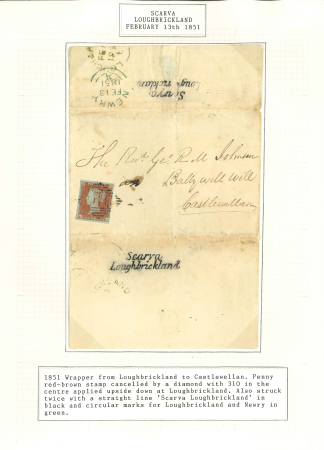 SCARVA
LOUGHBRICKLAND
FEBRUARY 13th 1851
NEWRY
FE13
1851
Scarva
Loughbrickland
The Revd. Geo. R. M Johnson
Ballywillwill
Castlewellan
Scarva
Loughbrickland
1851 Wrapper from Loughbrickland to Castlewellan. Penny
red-brown stamp cancelled by a diamond with 310 in the
centre applied upside down at Loughbrickland. Also struck
twice with a straight line 'Scarva Loughbrickland' in
black and circular marks for Loughbrickland and Newry in
green.